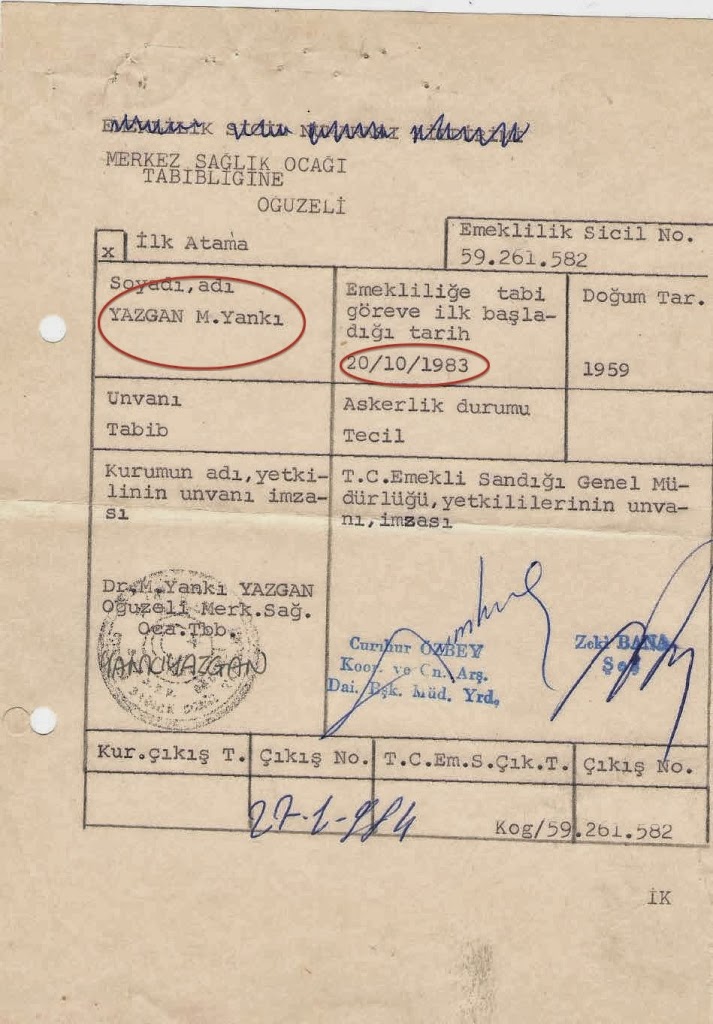 MERKEZ SAĞLIK OCAĞI
TABIBLIGİNE
OGUZELİ
x İlk Atama
Emeklilik Sicil No.
59.261.582
Soyadı,adı
YAZGAN M.Yankı
Emekliliğe tabi
göreve ilk başla-
dığı tarih
20/10/1983
Doğum Tar.
1959
Unvanı
Tabib
Askerlik durumu
Tecil
Kurumun adı,yetki-
linin unvanı imza-
sı
T.C.Emekli Sandığı Genel Mü-
dürlüğü,yetkililerinin unva-
nı,imzası
Dr.M.Yankı YAZGAN
Oğuzeli Merk.Sağ.
Oca.Tbb.
YANKI YAZGAN
Cumhur ÖZBEY
Koor. ve Arş.
Dai. Bşk. Müd. Yrd.
Zeki BANA
Şef
Kur.çıkış T.
Çıkış No.
T.C.Em.S.Çık.T.
Çıkış No.
27-1-984
Kog/59.261.582
İK